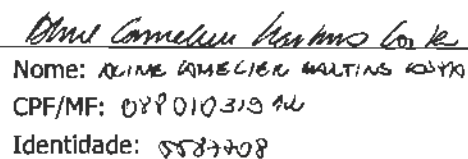 Aline Camelier Martins Costa
Nome: ALINE CAMELIER MARTINS COSTA
CPF/MF:
Identidade: 5587708